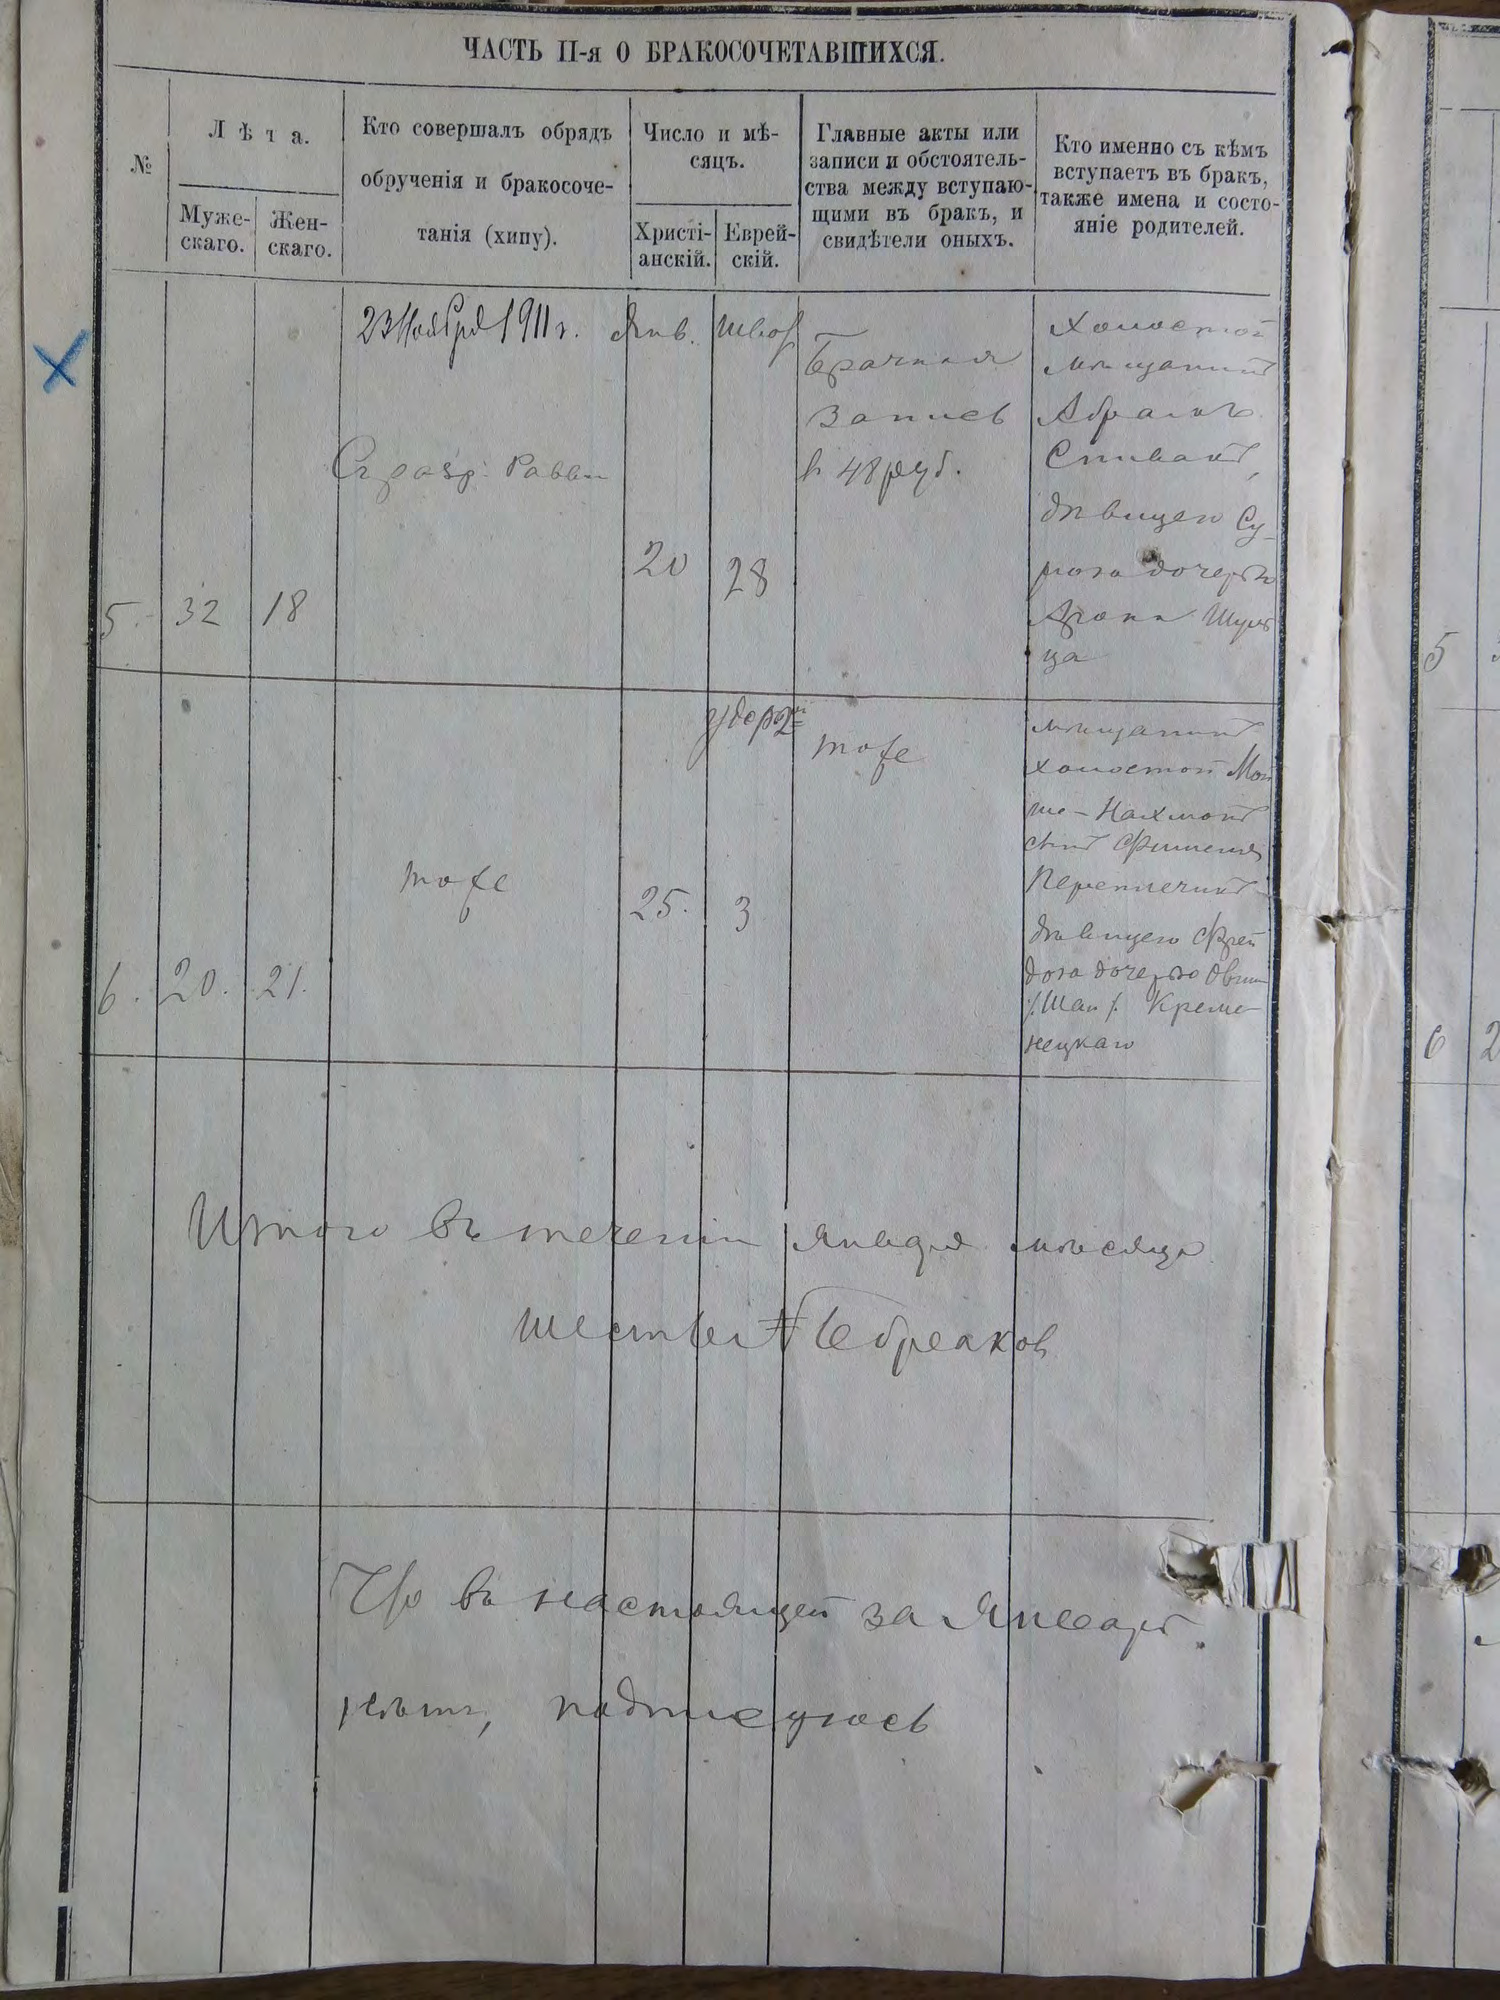 ЧАСТЬ II-я О БРАКОСОЧЕТАВШИХСЯ.
№
Лѣта.
Муже-
скаго.
Жен-
скаго.
Кто совершалъ обрядъ
обрученія и бракосоче-
танія (хипу).
Число и мѣ-
сяцъ.
Христі-
анскій.
Еврей-
скій.
Главные акты или
записи и обстоятель-
ства между вступаю-
щими въ бракъ, и
свидѣтели оныхъ.
Кто именно съ кѣмъ
вступаетъ въ бракъ,
также имена и состо-
яніе родителей.
5.
32
18
23 Ноября 1911 г.
Раввин
Янв.
20
28
Брачная
запись
в 48 руб.
Холостой
мѣщанинъ
Абрамъ
Спивакъ,
дѣвицею Су-
рою дочерью
Арона Шуль
ца
6.
20.
21.
тоже
25.
3
тоже
мѣщанинъ
холостой Мой
ше-Нахманъ
сынъ Фишеля
Перепнечикъ
дѣвицею Фрей
дою дочерью
/:Шаи/: Креме-
нецкаго
Итого въ теченіи января мѣсяца
шесть № 6 браков
Что въ настоящей за Январь
подписуюсь
5
6
2